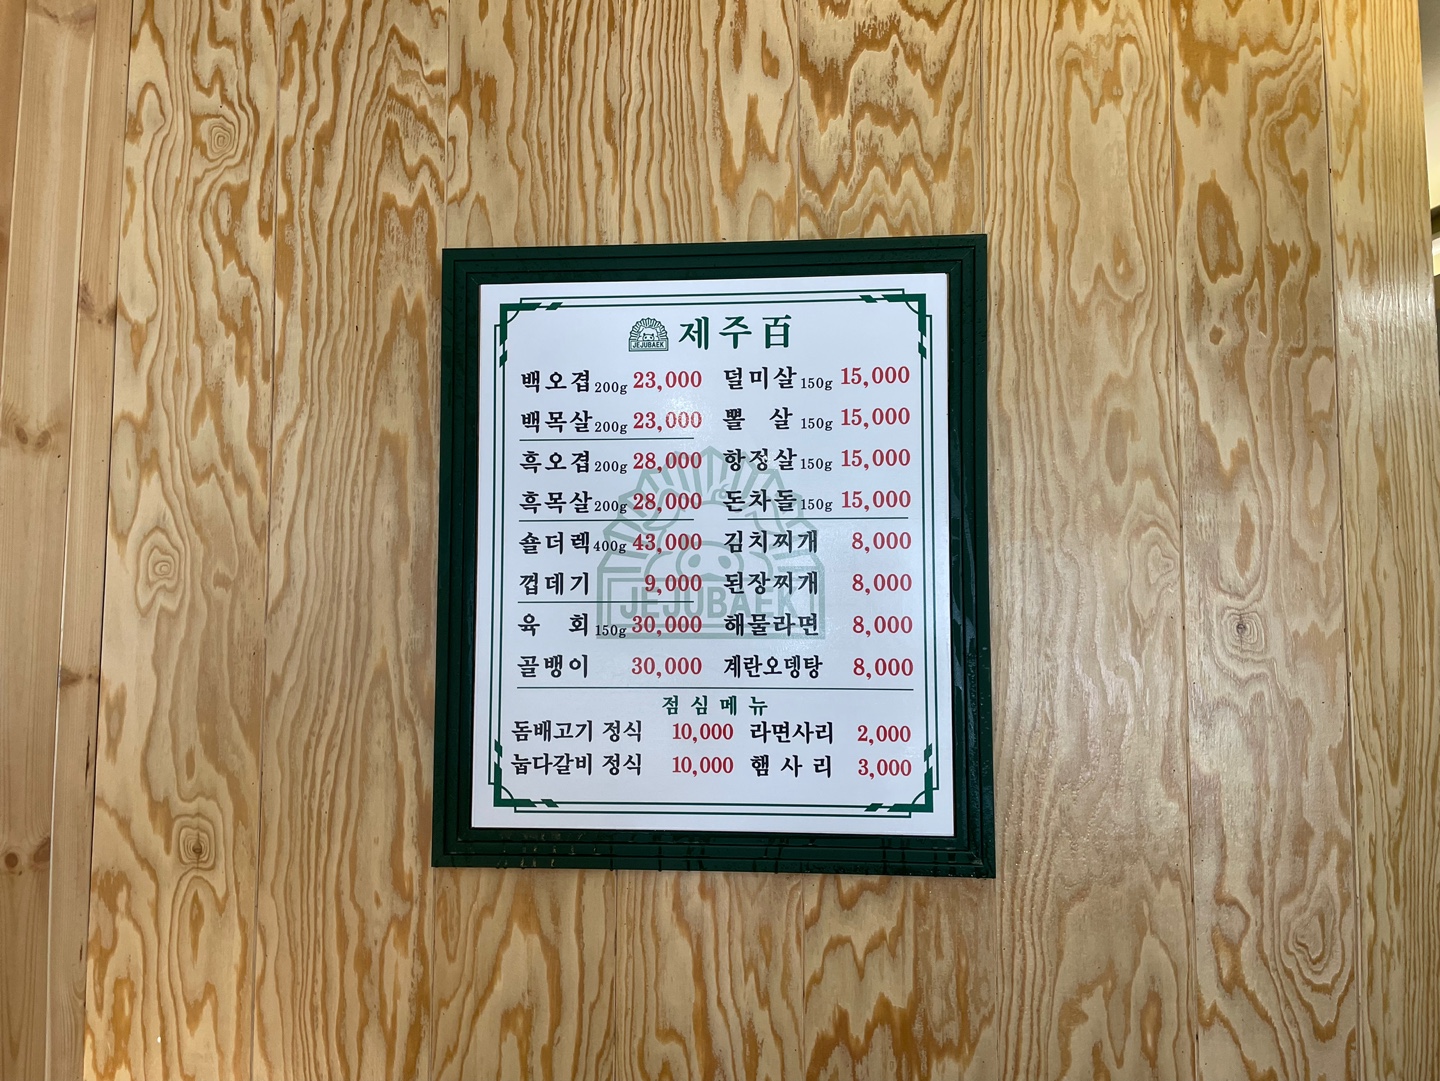 JEJUBAEK 제주百
백오겹 200g 23,000 덜미살 150g 15,000
백목살 200g 23,000 뽈 살 150g 15,000
흑오겹 200g 28,000 항정살 150g 15,000
흑목살 200g 28,000 돈차돌 150g 15,000
숄더렉 400g 43,000 김치찌개 8,000
껍데기 9,000 된장찌개 8,000
JEJUBAEK
육 회 150g 30,000 해물라면 8,000
골뱅이 30,000 계란오뎅탕 8,000
점심메뉴
돔배고기 정식 10,000 라면사리 2,000
눕다갈비 정식 10,000 햄사리 3,000